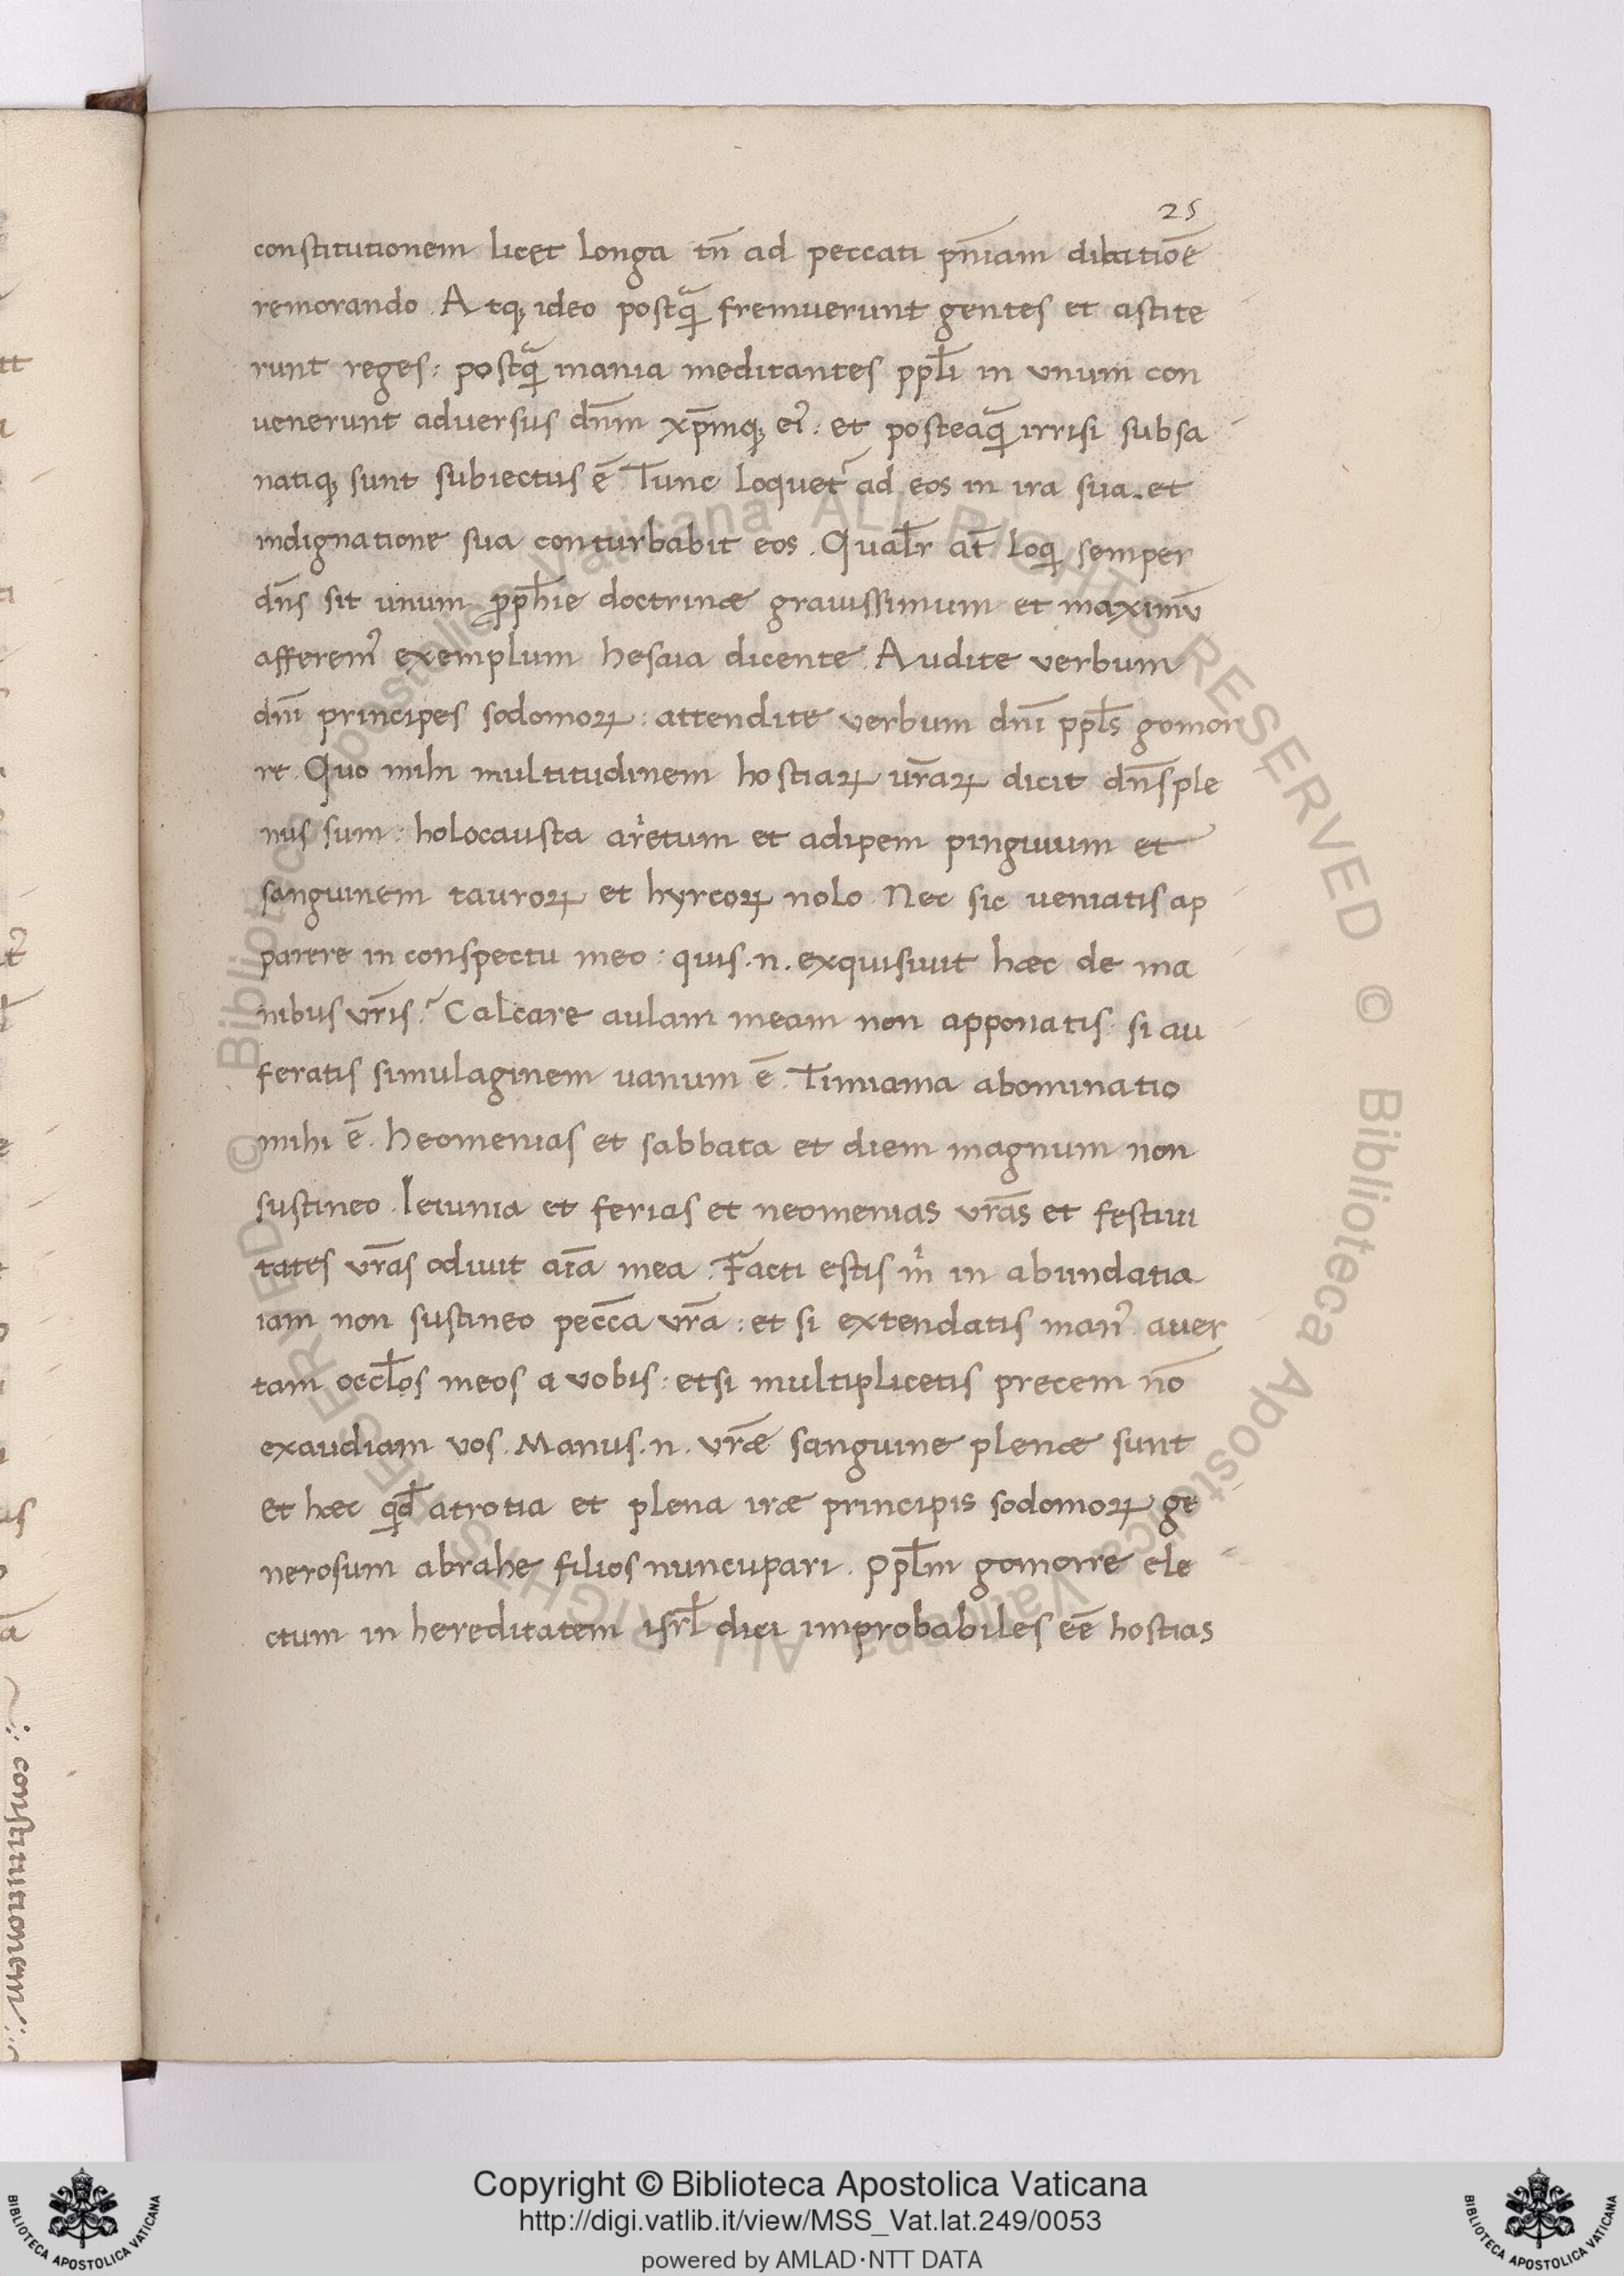 25
constitutionem licet longa tñ ad peccati pñiam dilatiōe
remorando. Atq; ideo postq̃ fremuerunt gentes et astite
runt reges: postq̃ inania meditantes ppl̃i in unum con
uenerunt adversus dñm xp̄mq; eiꝰ: et posteaq̃ irrisi subsa
natiq; sunt subiectus ē Tunc loquet᷑ ad eos in ira sua. et
indignatione sua conturbabit eos. Qual̃r at̃ loqͥ semper
dñs sit unum ꝓph̃ie doctrinæ grauissimum et maximū
afferemꝰ exemplum hesaia dicente. Audite verbum
dñi principes sodomoꝝ: attendite verbum dñi ppl̃s gomor
re. Quo mihi multitudinem hostiaꝝ ur̃aꝝ dicit dñs ple
nus sum: holocausta arͥetum et adipem pinguium et
sanguinem tauroꝝ et hyrcoꝝ nolo. Nec sic ueniatis ap
parere in conspectu meo: quis .n. exquisiuit hæc de ma
nibus vr̃is? Calcare aulam meam non apponatis: si au
feratis simulaginem uanum ē. Timiama abominatio
mihi ē. Heomenias et sabbata et diem magnum non
sustineo. Ieiunia et ferias et neomenias vr̃as et festiui
tates vr̃as odiuit aĩa mea. Facti estis mͥ in abundatia
iam non sustineo pecc̄a vr̃a: et si extendatis manꝰ auer
tam occl̃os meos a vobis: etsi multiplicetis precem nō
exaudiam vos. Manus .n. vr̃æ sanguine plenæ sunt
et hæc qͥd̃ atrotia et plena iræ principis sodomoꝝ ge
nerosum abrahe filios nuncupari. Ppl̃m gomorre ele
ctum in hereditatem isrl̃ dici improbabiles eē hostias
constitutionem
© Biblioteca Apostolica Vaticana ALL RIGHTS RESERVED © Biblioteca Apostolica Vaticana ALL RIGHTS RESERVED
Copyright © Biblioteca Apostolica Vaticana
http://digi.vatlib.it/view/MSS_Vat.lat.249/0053
powered by AMLAD·NTT DATA
BIBLIOTECA APOSTOLICA VATICANA
BIBLIOTECA APOSTOLICA VATICANA